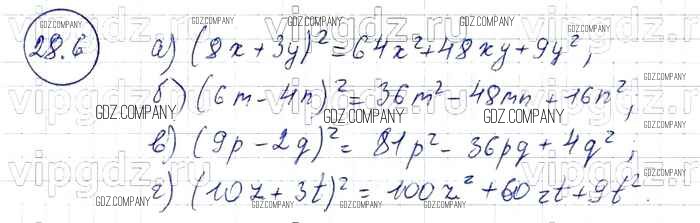 28.6 а) (8x + 3y)² = 64x² + 48xy + 9y²,
б) (6m - 4n)² = 36m² - 48mn + 16n²,
в) (9p - 2q)² = 81p² - 36pq + 4q²;
г) (10z + 3t)² = 100z² + 60zt + 9t².